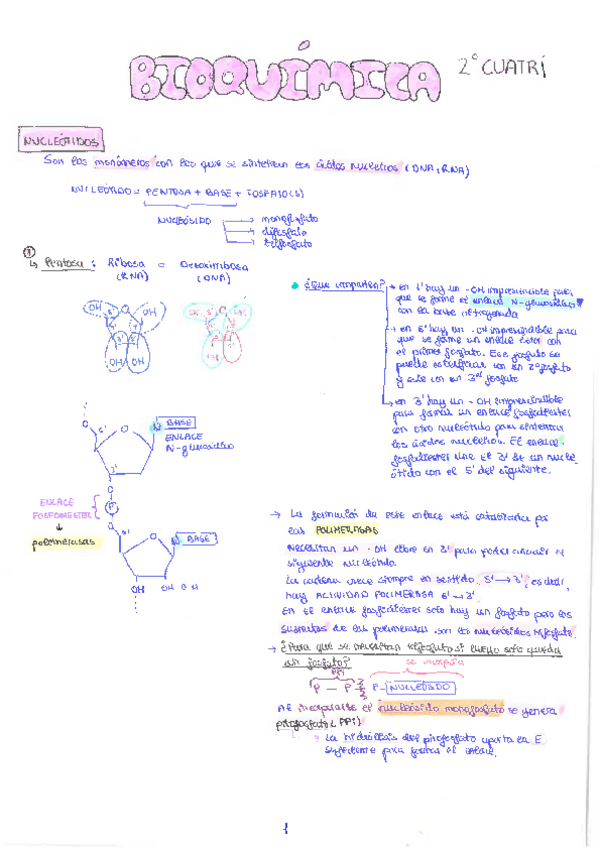 BIOQUÍMICA 2º CUATRI
NUCLEÓTIDOS
Son los monómeros con los que se sintetizan los ácidos nucleicos (DNA, RNA)
NUCLEÓTIDO = PENTOSA + BASE + FOSFATO(S)
NUCLEÓSIDO
monofosfato
difosfato
trifosfato
①
↳ Pentosa : Ribosa o Desoxirribosa
(RNA) (DNA)
OH 5' OH
4' 1'
3' 2'
OH OH
¿Que importan?
→ en 1' hay un -OH imprescindible para
que se forme el enlace N-glucosídico
con la base nitrogenada
→ en 5' hay un -OH imprescindible para
que se forme un enlace éster con
el primer fosfato. Ese fosfato se
puede esterificar con un 2º fosfato
y este con un 3er fosfato
→ en 3' hay un -OH imprescindible
para formar un enlace fosfodiéster
con otro nucleótido para sintetizar
los ácidos nucleicos. El enlace
fosfodiester une el 3' de un nucle
ótido con el 5' del siguiente.
O
5' O N BASE
ENLACE
N-glucosídico
3'
O
ENLACE
P
↓
polimerasas
O 5'
O N BASE
OH OH
→ La formación de este enlace está catalizada por
las POLIMERASAS
Necesitan un -OH libre en 3' para poder anclar el
siguiente nucleótido.
La cadena crece siempre en sentido 5' → 3', es decir,
hay ACTIVIDAD POLIMERASA 5' → 3'.
En el enlace fosfodiéster solo hay un fosfato pero los
sustratos de las polimerasas son los nucleósidos trifosfato.
→ ¿Para que se necesitan trifosfato si luego solo queda
un fosfato?
se incorpora
PPi
P - P P - NUCLEÓSIDO
Al incorporarse el nucleósido monofosfato se genera
pirofosfato (PPi)
→ La hidrólisis del pirofosfato aporta la E
suficiente para formar el enlace.
1